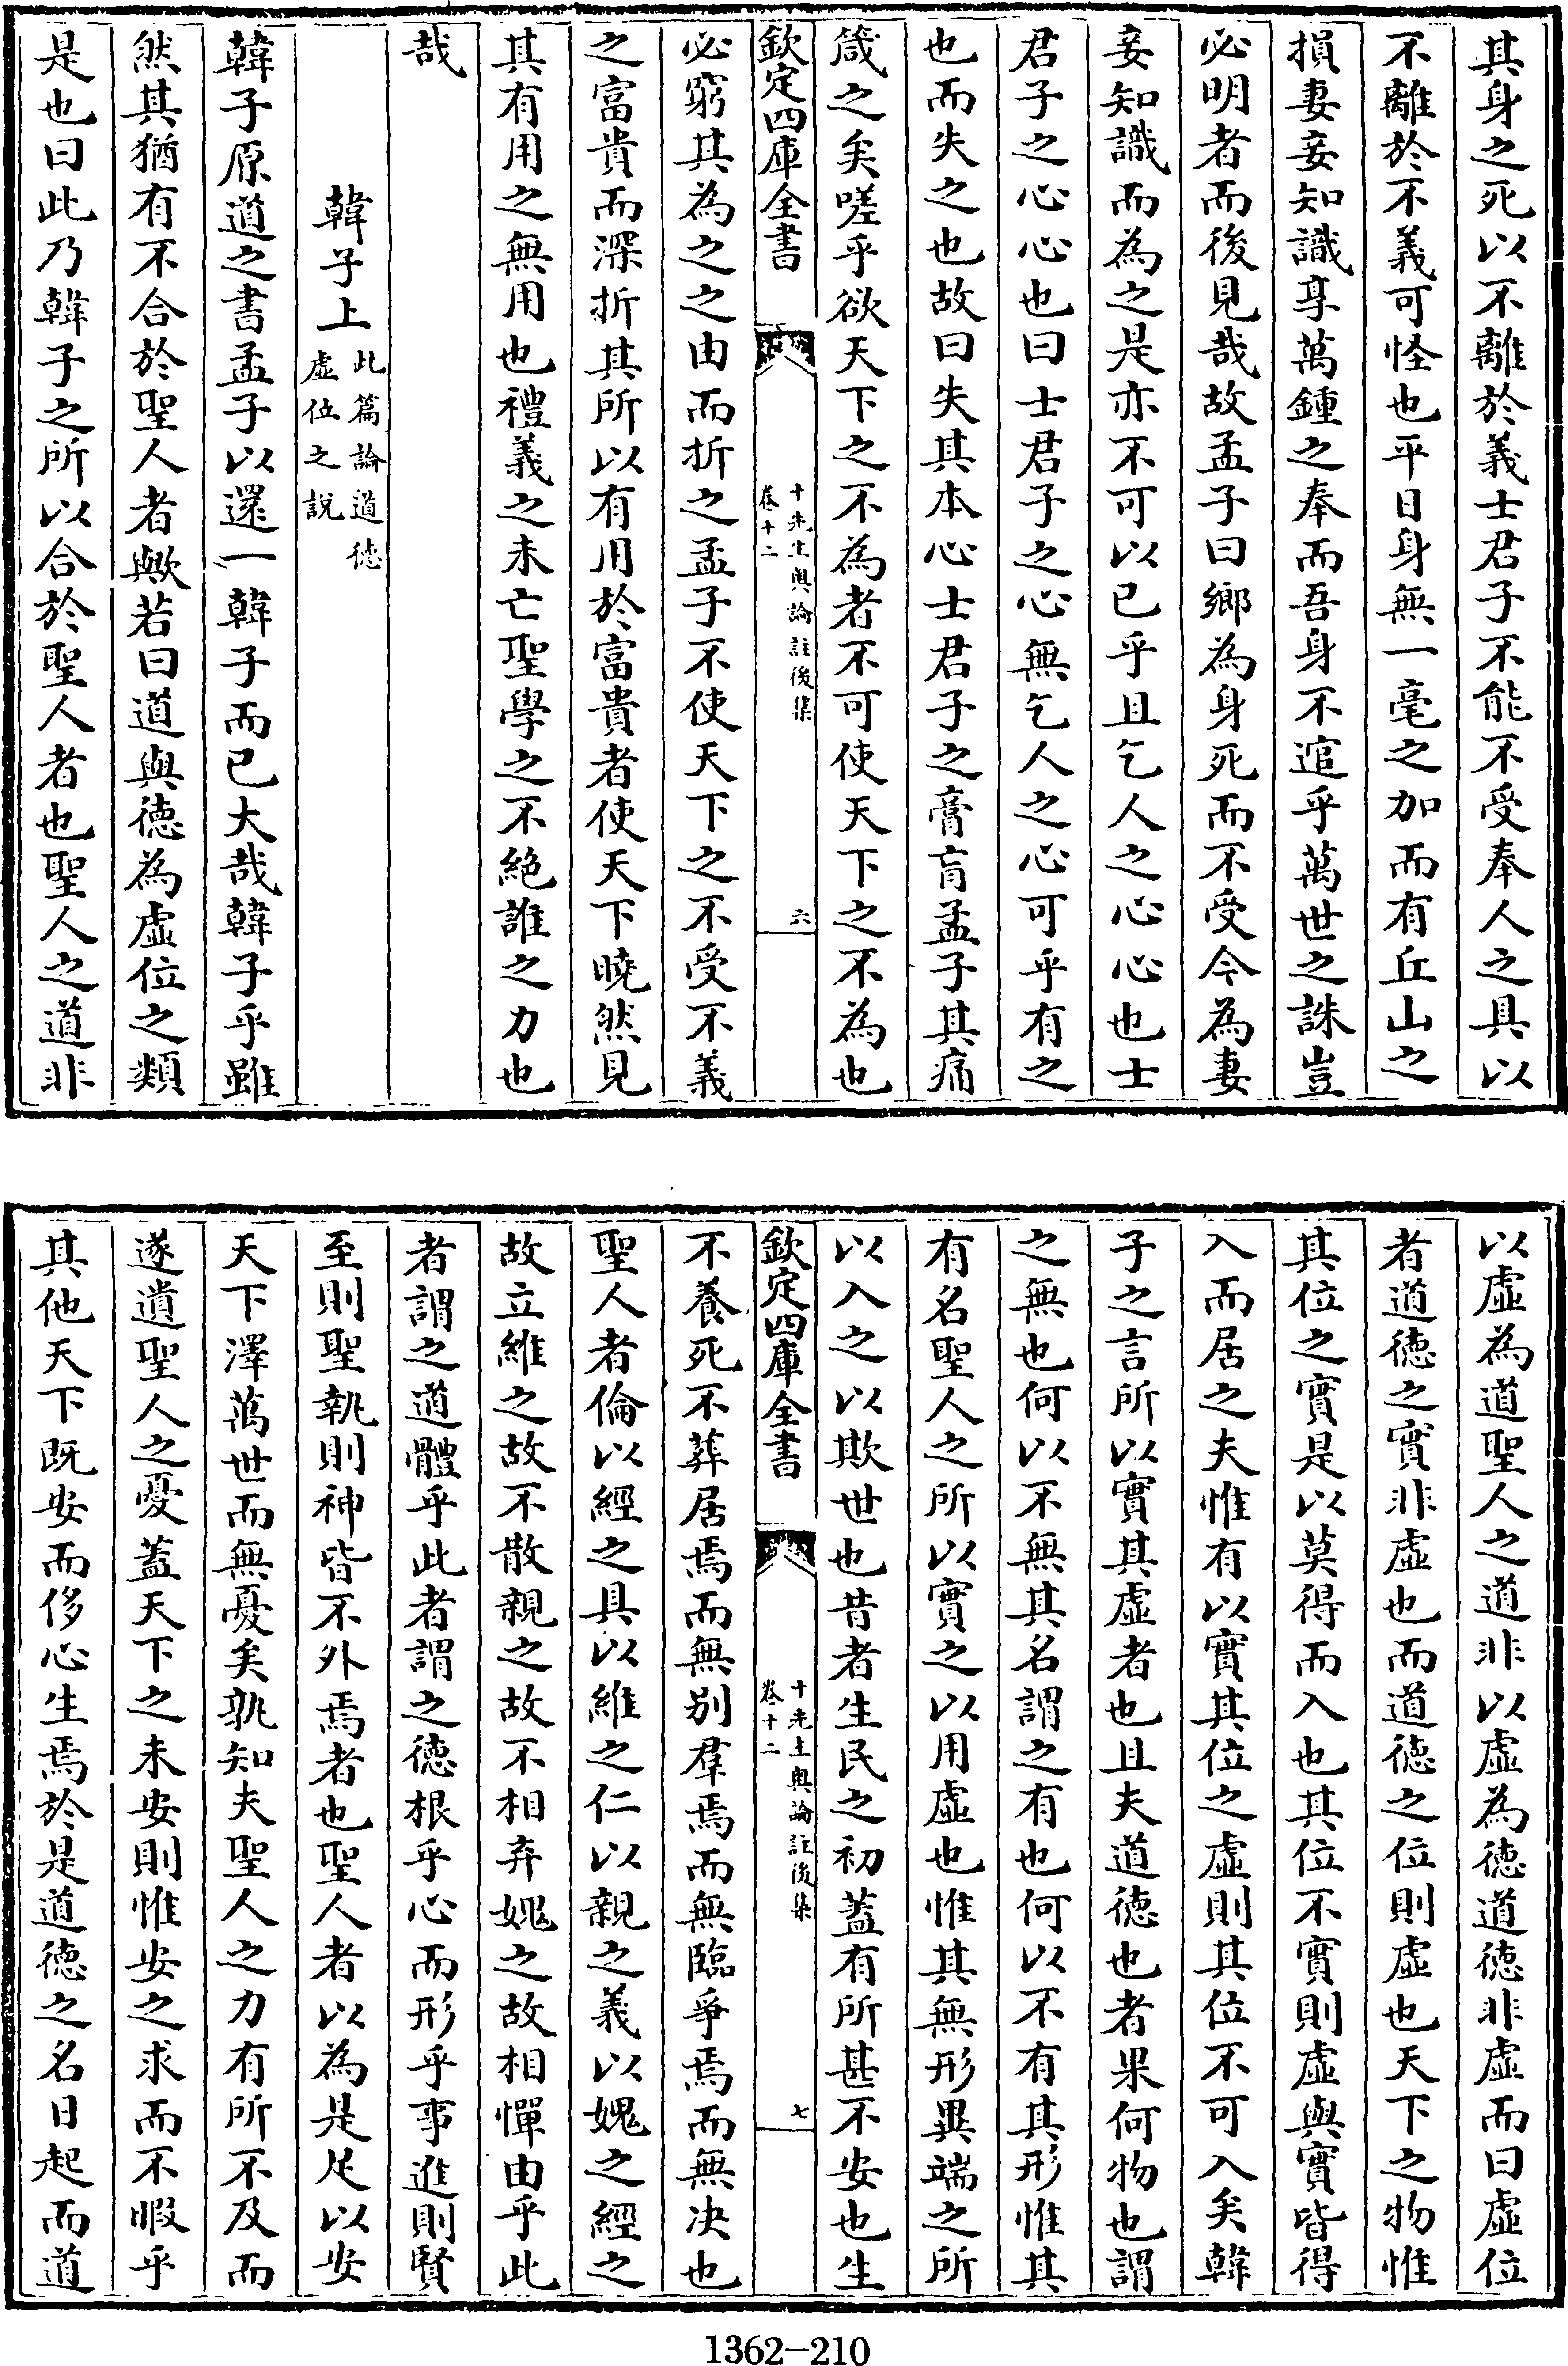 其身之死以不離於義士君子不能不受奉人之具以
不離於不義可怪也平日身無一毫之加而有丘山之
損妻妾知識享萬鍾之奉而吾身不逭乎萬世之誅豈
必明者而後見哉故孟子曰鄉為身死而不受今為妻
妾知識而為之是亦不可以已乎且乞人之心心也士
君子之心心也曰士君子之心無乞人之心可乎有之
也而失之也故曰失其本心士君子之膏肓孟子其痛
箴之矣嗟乎欲天下之不為者不可使天下之不為也
欽定四庫全書
十先生奧論註後集
卷十二
六
必窮其為之之由而折之孟子不使天下之不受不義
之富貴而深折其所以有用於富貴者使天下曉然見
其有用之無用也禮義之未亡聖學之不絕誰之力也
哉
韓子上此篇論道德
虛位之說
韓子原道之書孟子以還一韓子而已大哉韓子乎雖
然其猶有不合於聖人者歟若曰道與德為虛位之類
是也曰此乃韓子之所以合於聖人者也聖人之道非
以虛為道聖人之道非以虛為德道德非虛而曰虛位
者道德之實非虛也而道德之位則虛也天下之物惟
其位之實是以莫得而入也其位不實則虛與實皆得
入而居之夫惟有以實其位之虛則其位不可入矣韓
子之言所以實其虛者也且夫道德也者果何物也謂
之無也何以不無其名謂之有也何以不有其形惟其
有名聖人之所以實之以用虛也惟其無形異端之所
以入之以欺世也昔者生民之初蓋有所甚不安也生
欽定四庫全書
十先生奧論註後集
卷十二
七
不養死不葬居焉而無別羣焉而無臨爭焉而無決也
聖人者倫以經之具以維之仁以親之義以媿之經之
故立維之故不散親之故不相弃媿之故相憚由乎此
者謂之道體乎此者謂之德根乎心而形乎事進則賢
至則聖執則神皆不外焉者也聖人者以為是足以安
天下澤萬世而無憂矣孰知夫聖人之力有所不及而
遂遺聖人之憂蓋天下之未安則惟安之求而不暇乎
其他天下既安而侈心生焉於是道德之名日起而道
1362-210